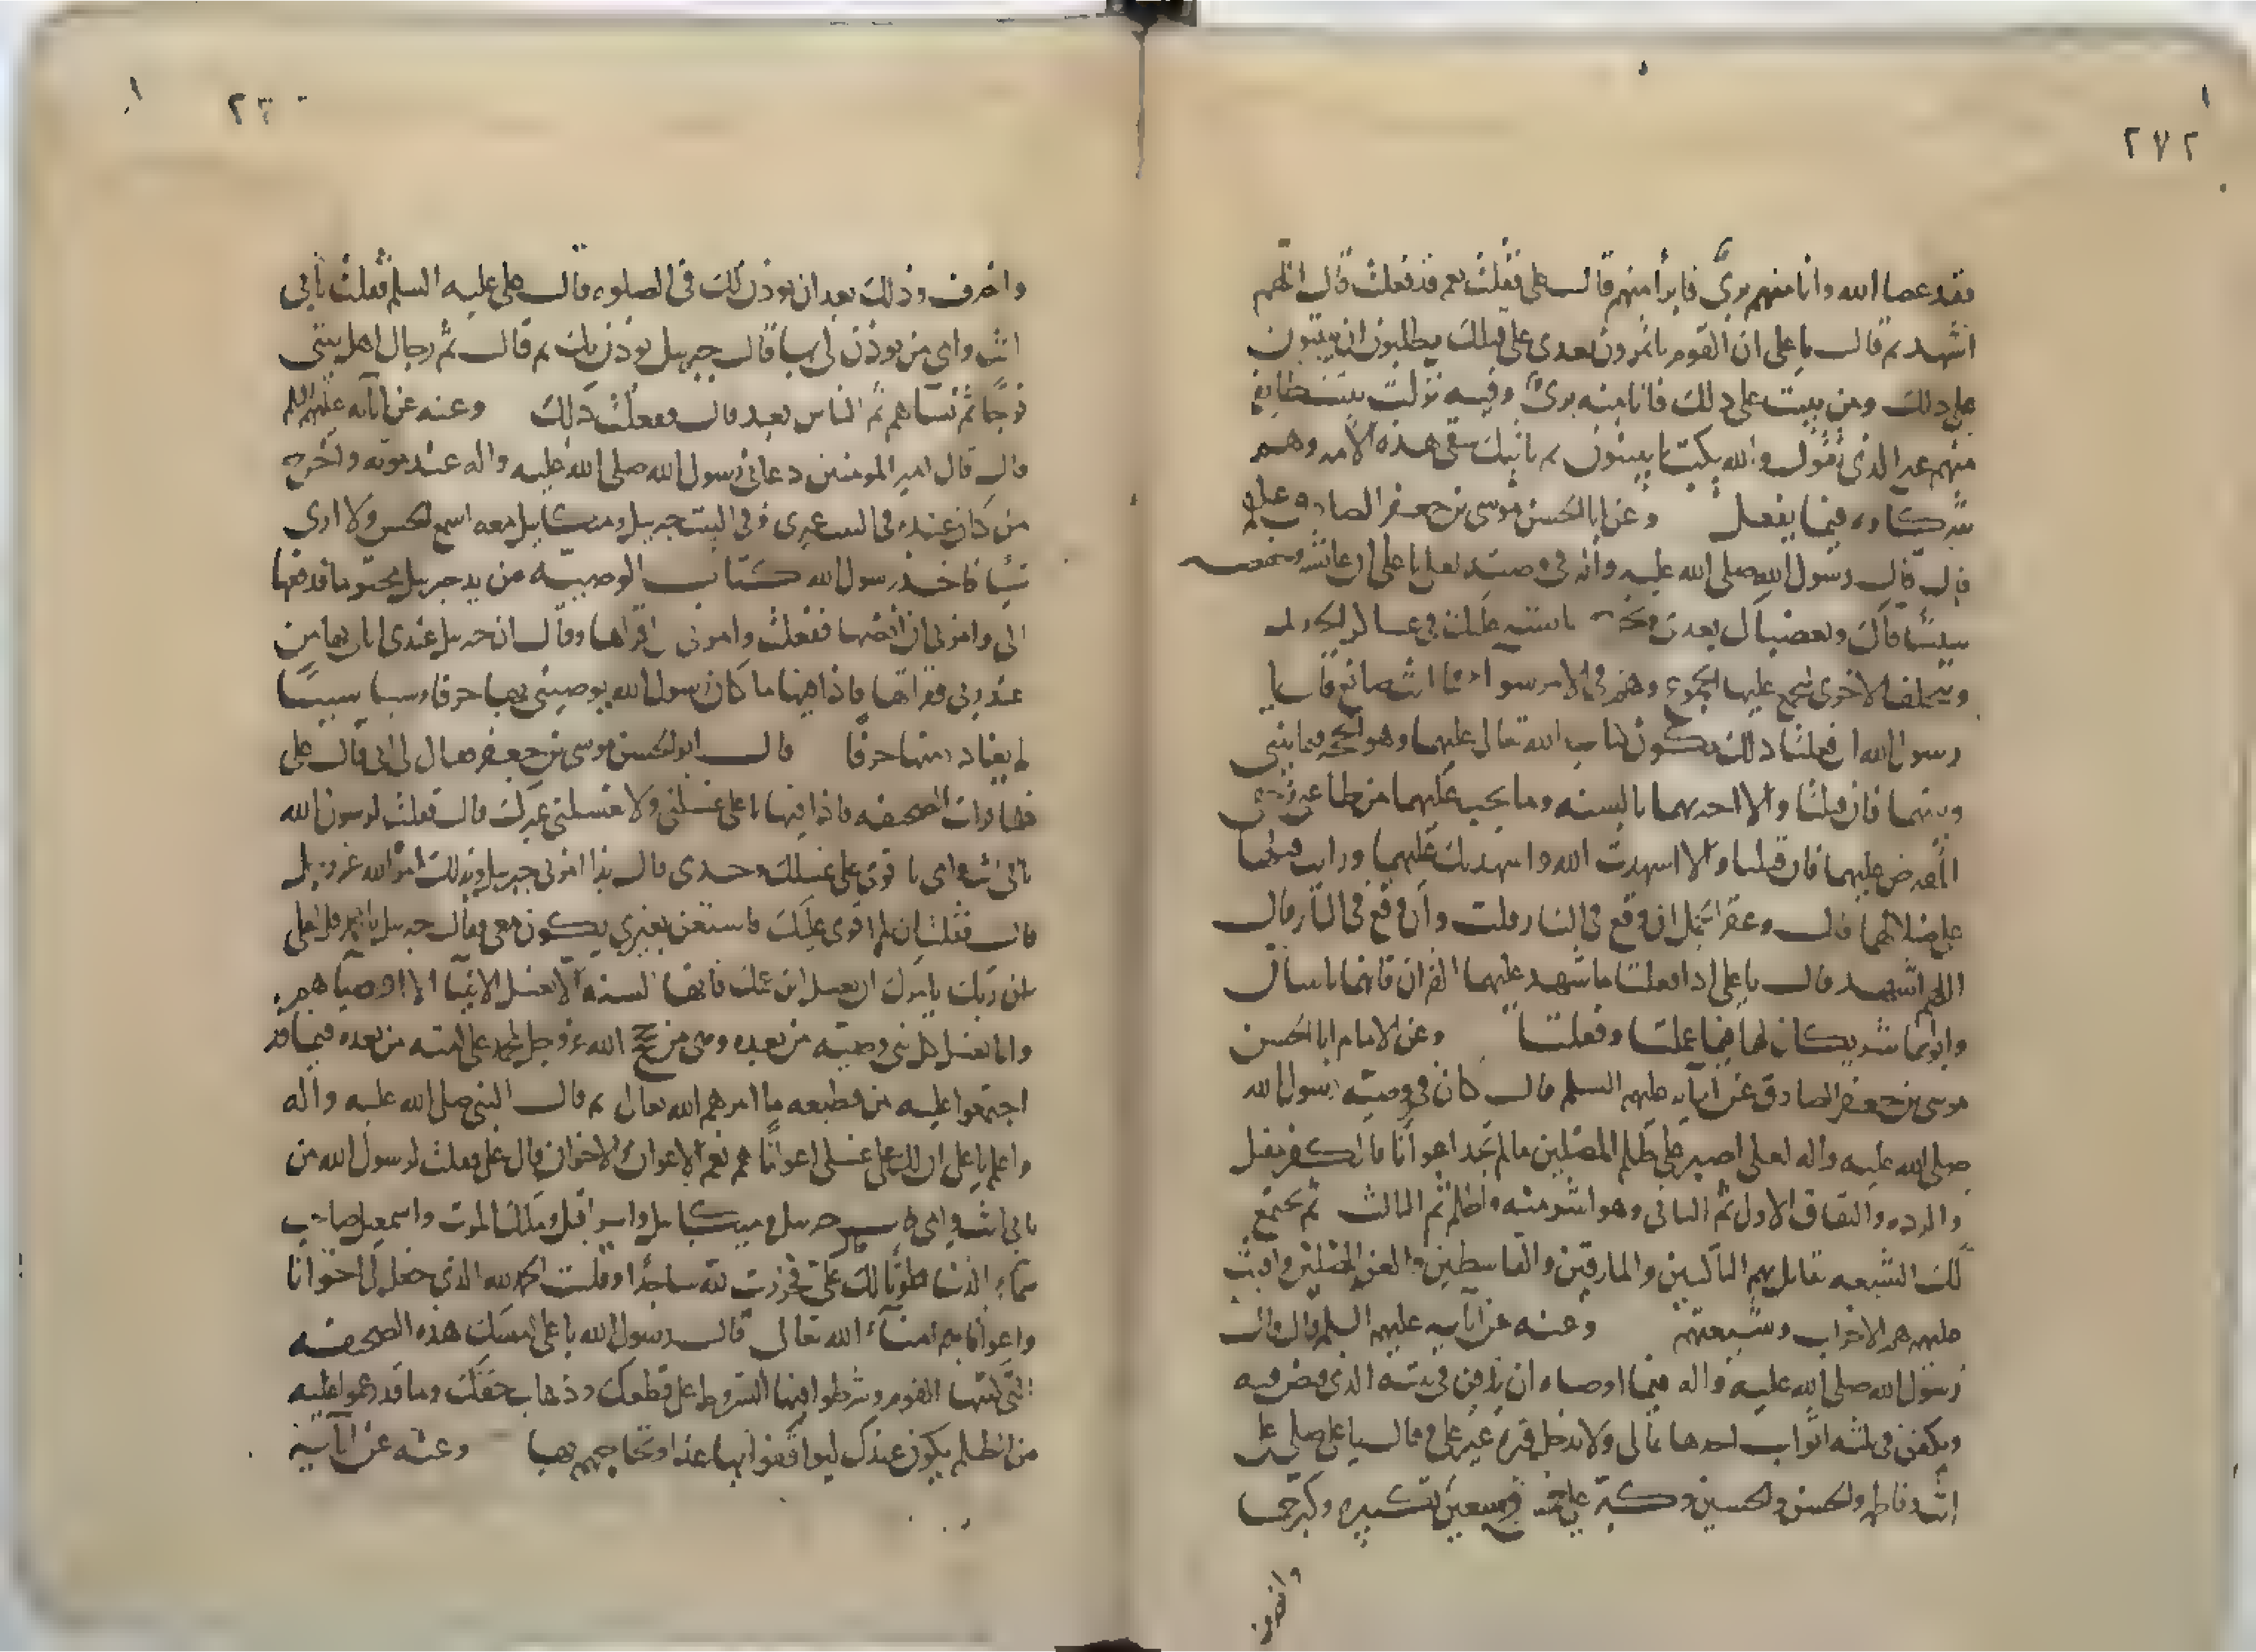 ٢٧٢
فقد عصا الله وانا منهم برئ فابرأ منهم قال على فقلت نعم قد فعلت قال اللهم
اشهد ثم قال يا على ان القوم ياتمرون بعدى على قتلك يظلمون ان يبيتون
على ذلك ومن يبيت على ذلك فانا منه برئ وفيه نزلت بيت طايفة
منهم غير الذى تقول والله يكتب ما يبيتون ثم ياتيك شقى هذه الامه وهم
شركاوه فيما يفعل وعن ابا الحسن موسى بن جعفر الصادق
قال قال رسول الله صلى الله عليه واله فى وصيته لعلى يا على ان
ويتخلف الاخرى تجمع عليها الجموع وهم فى الامر سوآء فما انت صانع قال يا
رسول الله ان فعلتا ذلك كتاب الله تعالى عليهما وهو الحجه فيما بينى
وبينهما فان قبلتا والا اخبرتهما بالسنه وما يجب عليهما من طاعتى
المفروض عليهما فان قبلتا والا اشهدت الله واشهدتك عليهما ورايت
على ضلالهما قال وعقر الجمل ان وقع فى النار قلت وان وقع فى النار قال
اللهم اشهد قال يا على اذا فعلتا ما شهد عليهما القران فابنهما
وابواهما شريكان لهما فيما عملتا وفعلتا وعن الامام ابا الحسن
موسى بن جعفر الصادق عن ابآئه عليهم السلم قال كان فى وصيته رسول الله
صلى الله عليه واله لعلى اصبر على ظلم المضلين مالم تجد اعوانا فالكفر مقبل
والرده والنفاق الاول ثم الثانى وهو اشر منه واظلم ثم الثالث ثم تجتمع
لك الشيعه تقاتل بهم الناكثين والمارقين والقاسطين والعن المضلين واقنت
عليهم هم الاحزاب وشيعتهم وعنه عن ابآئه عليهم السلم قال قال
رسول الله صلى الله عليه واله فيما اوصاه ان يدفن فى بيته الذى قبض فيه
ويكفن فى ثلثه اثواب احدها يمانى ولا يدخل قبره غير على وقال يا على صلى على
انت وفاطمه والحسن والحسين وكبر وسبعين تكبيره وكبر خمسا
وانصرف
وانصرف وذلك بعد ان يوذن لك فى الصلوه قال على عليه السلم فقلت بابى
انت وامى من يوذن لى بها قال جبريل يوذن لك ثم قال ثم رجال اهل بيتى
فوجا ثم نسآهم ثم الناس بعد قال ففعلت ذلك وعنه عن ابآئه عليهم السلم
قال قال امير المومنين دعانى رسول الله صلى الله عليه واله عند موته واخرج
من كان عنده فى البيت غيرى وفى البيت جبريل وميكايل معه اسمع الحس ولا ارى
شيا فاخذ رسول الله كتاب الوصيه من يد جبريل مختوما فدفعها
الى وامرنى ان افضها ففعلت وامرنى ان اقراها وقال ان جبريل عندى اتانى بها من
عند ربى فقراتها فاذا فيها ما كان رسول الله يوصينى بها حرفا وشيا شيا
ما يغادر منها حرفا قال ابو الحسن موسى بن جعفر فقال لى ابى قال على
فقرات الصحيفه فاذا فيها يا على غسلنى ولا يغسلنى غيرك قال فقلت لرسول الله
بابى انت وامى انا اقوى على غسلك وحدى قال بذا امرنى جبريل وبذلك امره الله عز وجل
قال فقلت ان لم اقوى عليك فاستعن بغيرى يكون معى فقال جبريل يا محمد قل لعلى
ان ربك يامرك ان تغسل ابن عمك فانها السنه الا يغسل الانبيا الا اوصياهم
وانما يغسل كل نبى وصيه من بعده وهى من حجج الله عز وجل لمحمد على امته من بعده فيما قد
اجتمعوا عليه من قطيعه ما امرهم الله تعالى ثم قال النبى صلى الله عليه واله
واعلم يا على ان لك على غسلى اعوانا هم نعم الاعوان والاخوان قال على فقلت لرسول الله من
بابى انت وامى قال جبريل وميكايل واسرافيل وملك الموت واسمعيل صاحب
سماء الدنيا عونا لك على فخررت لله ساجدا وقلت الحمد لله الذى جعل لى اخوانا
واعوانا هم امنآء الله تعالى قال رسول الله يا على امسك هذه الصحيفه
التى كتبها القوم وشرطوا فيها الشروط على قطعك وذهاب حقك وما قد زعموا عليه
من الظلم يكون عندك ليوافقوا بها غدا وتحاججهم بها وعنه عن ابآئه